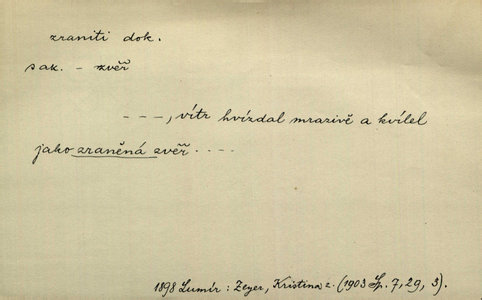 zraniti dok.
sak. - zvěř
- - -, vítr hvízdal mrazivě a kvílel
jako zraněná zvěř - - - -
1898 Lumír: Zeyer, Kristina z. (1903 Sp. 7, 29, 3).